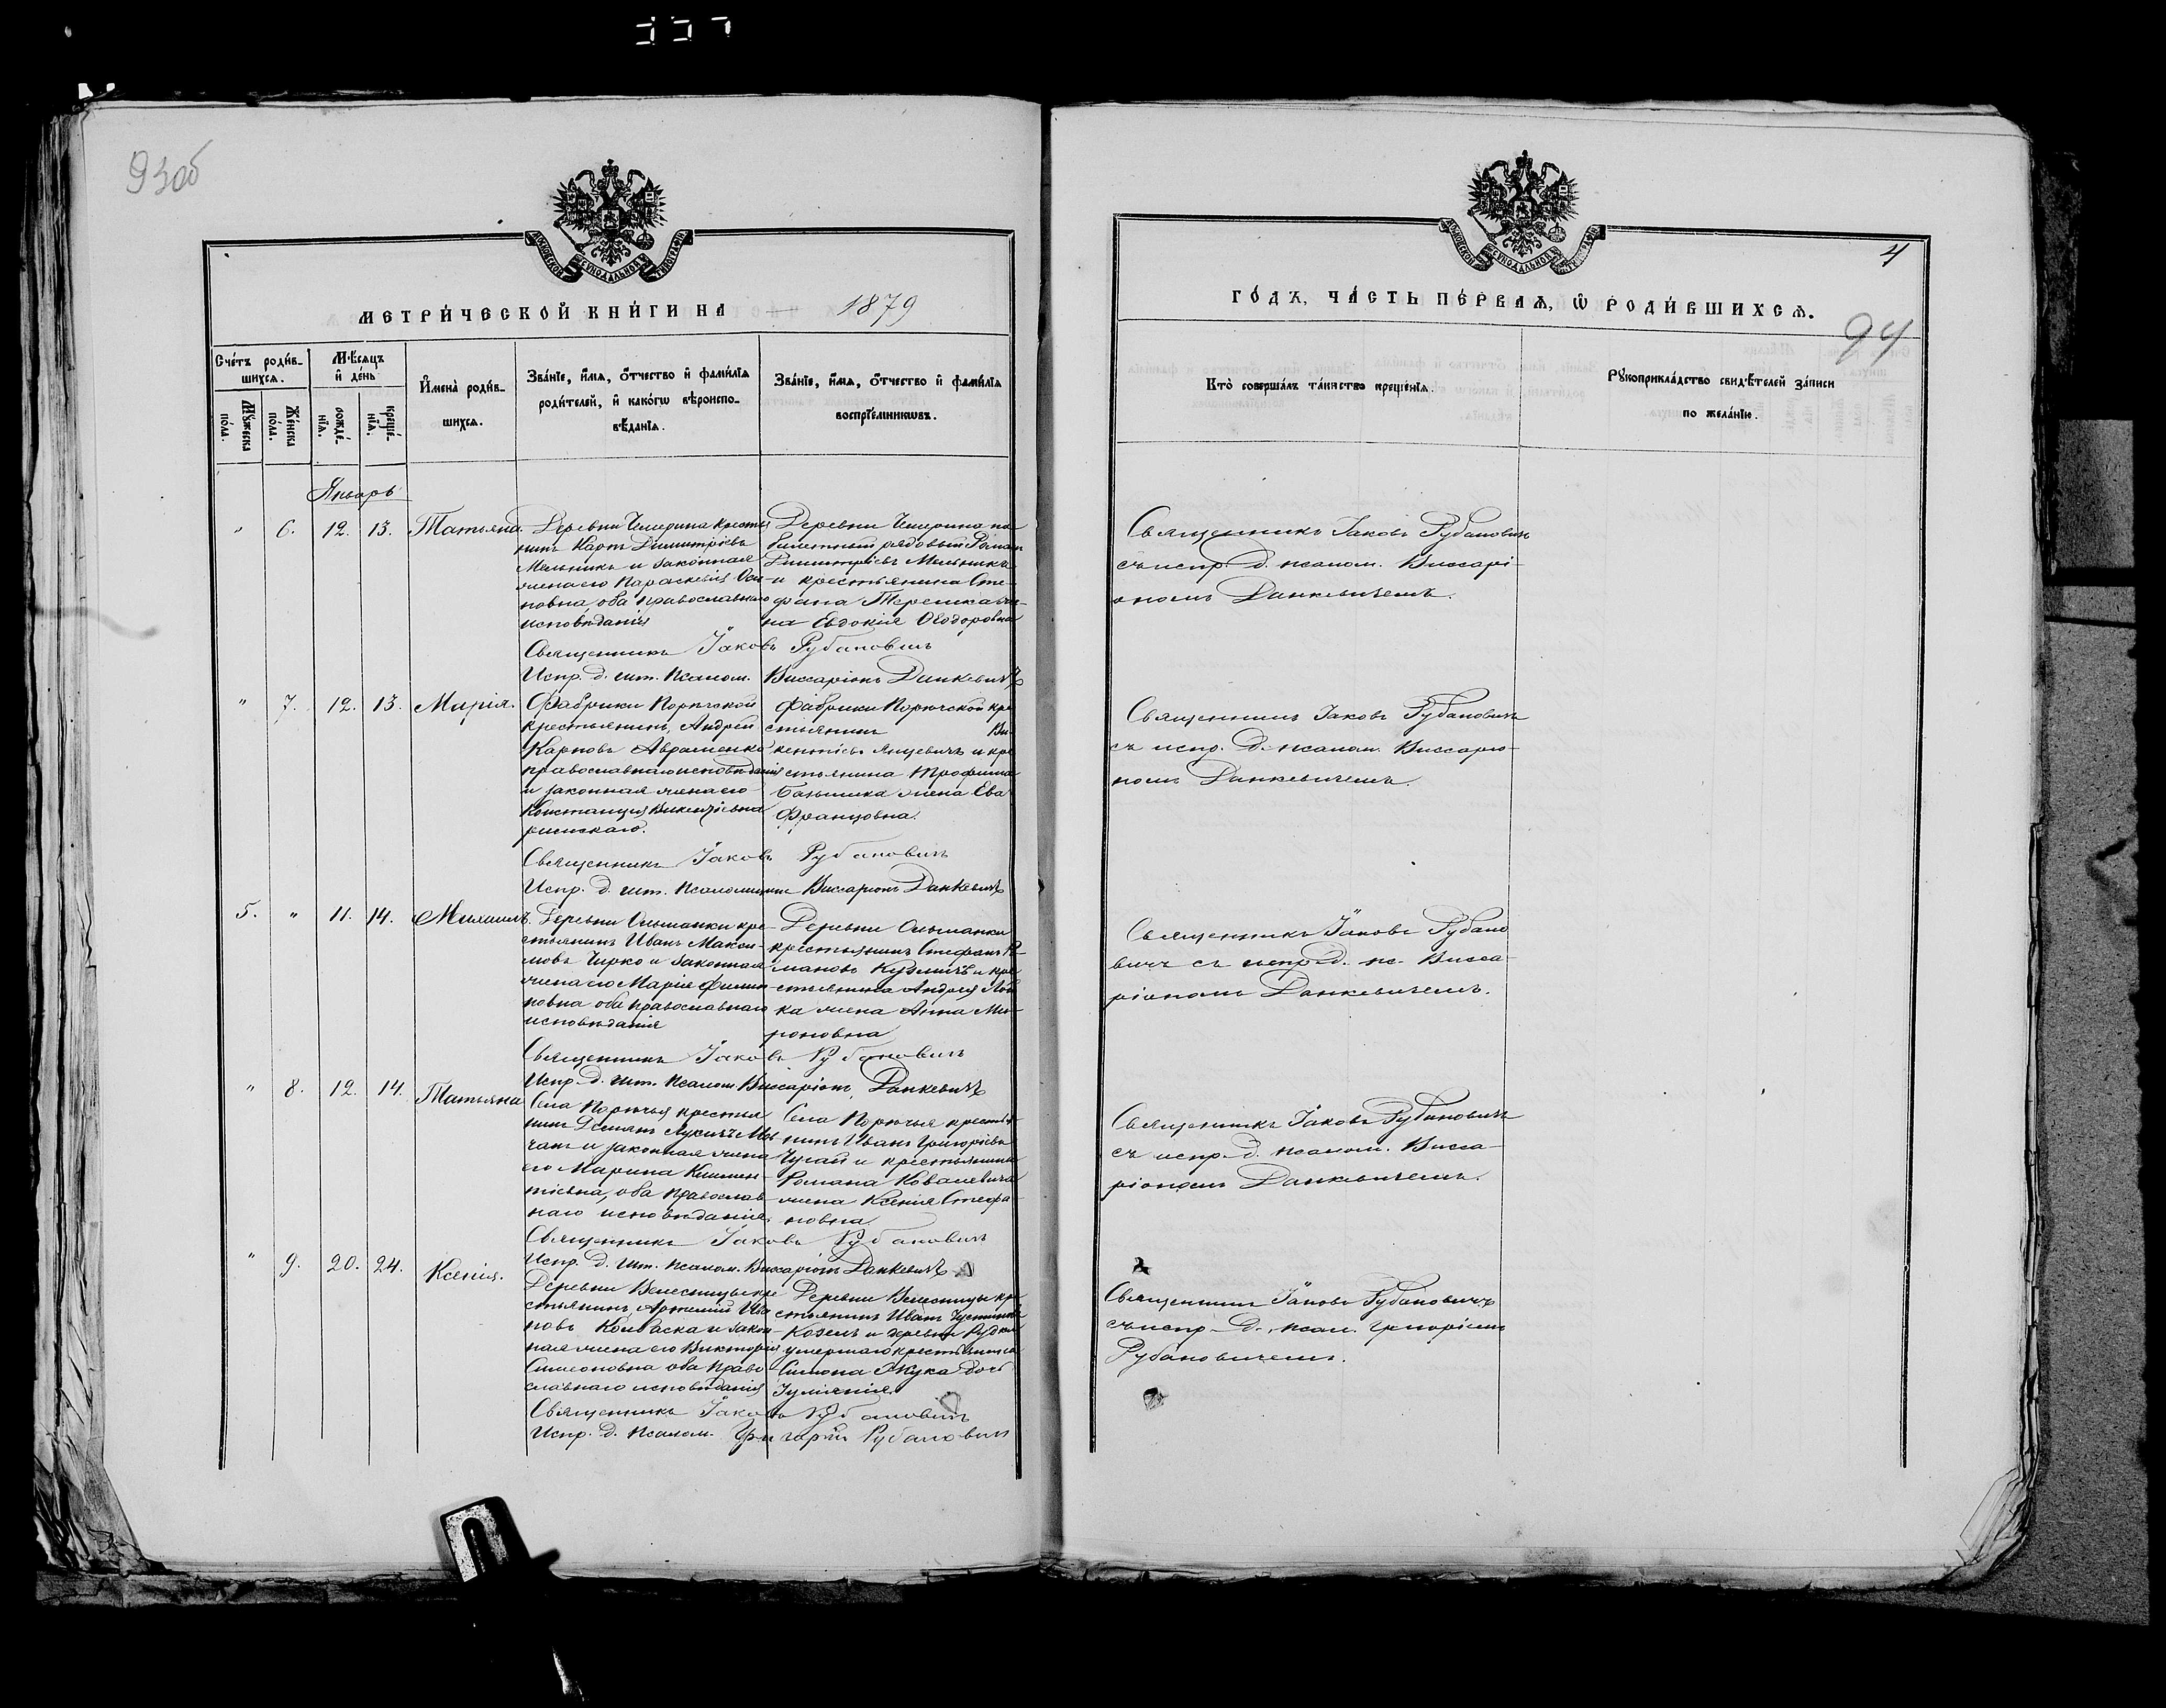 93об
МОСКОВСКОЙ СУНОДАЛЬНОЙ ТИПОГРАФІИ
МЕТРИ́ЧЕСКОЙ КНИ́ГИ НА 1879
Сче́тъ роди́в-
шихсѧ.
Мꙋ́жеска
по́ла.
Же́нска
по́ла.
Мѣ́сяцъ
и҆ де́нь
рожде́-
нїѧ.
креще́-
нїѧ.
И҆мена̀ роди́в-
шихсѧ.
Зва́нїе, и҆́мѧ, ѻ҆́тчество и҆ фами́лїѧ
роди́телей, и҆ како́гѡ вѣроиспо-
вѣ́данїѧ.
Зва́нїе, и҆́мѧ, ѻ҆́тчество и҆ фами́лїѧ
воспрїе́мникѡвъ.
Январь
" 6. 12. 13. Татьяна.
Деревни Чемерина крестья
нинъ Карпъ Димитріевъ
Мельникъ и законная
жена его Параскевія Оси-
повна, оба православнаго
исповѣданія
Деревни Чемерина
билетный рядовый Роман
Димитріевъ Мельникъ
и крестьянина Сте-
фана Терешка же-
на Евдокія Ѳеодоровна
Священникъ Іаковъ Рубановичъ
Испр. д. шт. псалом. Виссаріонъ Данкевичъ
" 7. 12. 13. Марія.
Фабрики Порѣчской
крестьянинъ, Андрей
Карповъ Авраменко
православнаго исповѣданія
и законная жена его
Констанція Викентіевна
римскаго.
Фабрики Порѣчской кре
стьянинъ Ви-
кентій Янцевичъ и кре
стьянина Трофима
жена Ева
Францовна.
Священникъ Іаковъ Рубановичъ
Испр. д. шт. псаломщика Виссаріонъ Данкевичъ
5. " 11. 14. Михаилъ.
Деревни Ольманки кре-
стьянинъ Иванъ Макси-
мовъ Чирко и законная
жена его Марія Филип-
повна оба православнаго
исповѣданія
Деревни Ольманки
крестьянинъ Стефанъ Р-
мановъ Кузмичъ и кре
стьянина Андрея
ка жена Анна Ми-
роновна
Священникъ Іаковъ Рубановичъ
Испр. д. шт. псалом. Виссаріонъ Данкевичъ
" 8. 12. 14. Татьяна
Села Порѣчья крестья
нинъ Демьянъ Лукичъ Мов
чанъ и законная жена
его Марина Климен-
тіевна, оба православ-
наго исповѣданія.
Села Порѣчья крестья
нинъ Иванъ Григоріевъ
Чугай и крестьянина
Романа Ковалевича
жена Ксенія Стефа-
новна.
Священникъ Іаковъ Рубановичъ
Испр. д. шт. псалом. Виссаріонъ Данкевичъ
" 9. 20. 24. Ксенія.
Деревни Велесницы кре
стьянинъ, Артемій Ива
новъ Колбаска и закон-
ная жена его Викторія
Симеоновна оба право-
славнаго исповѣданія
Деревни Велесницы кре
стьянинъ Иванъ Іустиновъ
Козелъ и деревни Рудки
умершаго крестьянина
Симона Жука дочь
Іуліанія.
Священникъ Іаковъ Рубановичъ
Испр. д. псалом. Григорій Рубановичъ
МОСКОВСКОЙ СУНОДАЛЬНОЙ ТИПОГРАФІИ
4
ГО́ДЪ, ЧА́СТЬ ПЕ́РВАѦ, Ѽ РОДИ́ВШИХСѦ.
94
Кто̀ соверша́лъ та́инство креще́нїѧ.
Рꙋкоприкла́дство свидѣ́телей за́писи
по жела́нїю.
Священникъ Іаковъ Рубановичъ
съ испр. д. псалом. Виссарі-
ономъ Данкевичемъ.
Священникъ Іаковъ Рубановичъ
съ испр. д. псалом. Виссаріо-
номъ Данкевичемъ.
Священникъ Іаковъ Рубано
вичъ съ испр. д. пс. Висса-
ріономъ Данкевичемъ.
Священникъ Іаковъ Рубановичъ
съ испр. д. псалом. Висса-
ріономъ Данкевичемъ.
Священникъ Іаковъ Рубановичъ
съ испр. д. псал. Григоріемъ
Рубановичемъ.